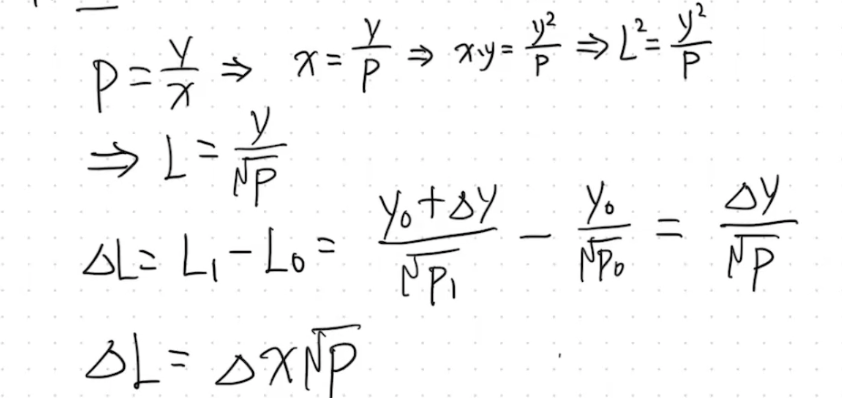 P = y/x ⇒ x = y/P ⇒ x·y = y²/P ⇒ L² = y²/P
⇒ L = y/√P
ΔL = L₁ - L₀ = (y₀ + Δy)/√P₁ - y₀/√P₀ = Δy/√P
ΔL = Δx√P